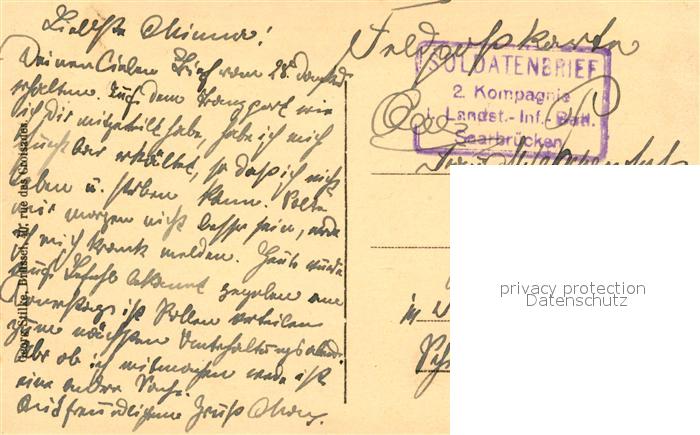 Liebste Minna!
Deinen lieben Brief vom 28. dankend
erhalten. Auf dem Transport wie
ich Dir mitgeteilt habe, habe ich mich
furchtbar erkältet, so daß ich nicht
leben u. sterben kann. Sollte
mir morgen nicht besser sein, werde
ich mich krank melden. Heute wurde
durch Befehl bekannt gegeben am
Donnerstag ist Rollen verteilen
zum nächsten Unterhaltungsabend.
Aber ob ich mitmachen werde ist
eine andere Sache.
Mit freundlichem Gruß
Georg Stilke, Brüssel, rue des Croisades.
Feldpostkarte
SOLDATENBRIEF
2. Kompagnie
Landst.-Inf.-Batl.
Saarbrücken
in
privacy protection
Datenschutz